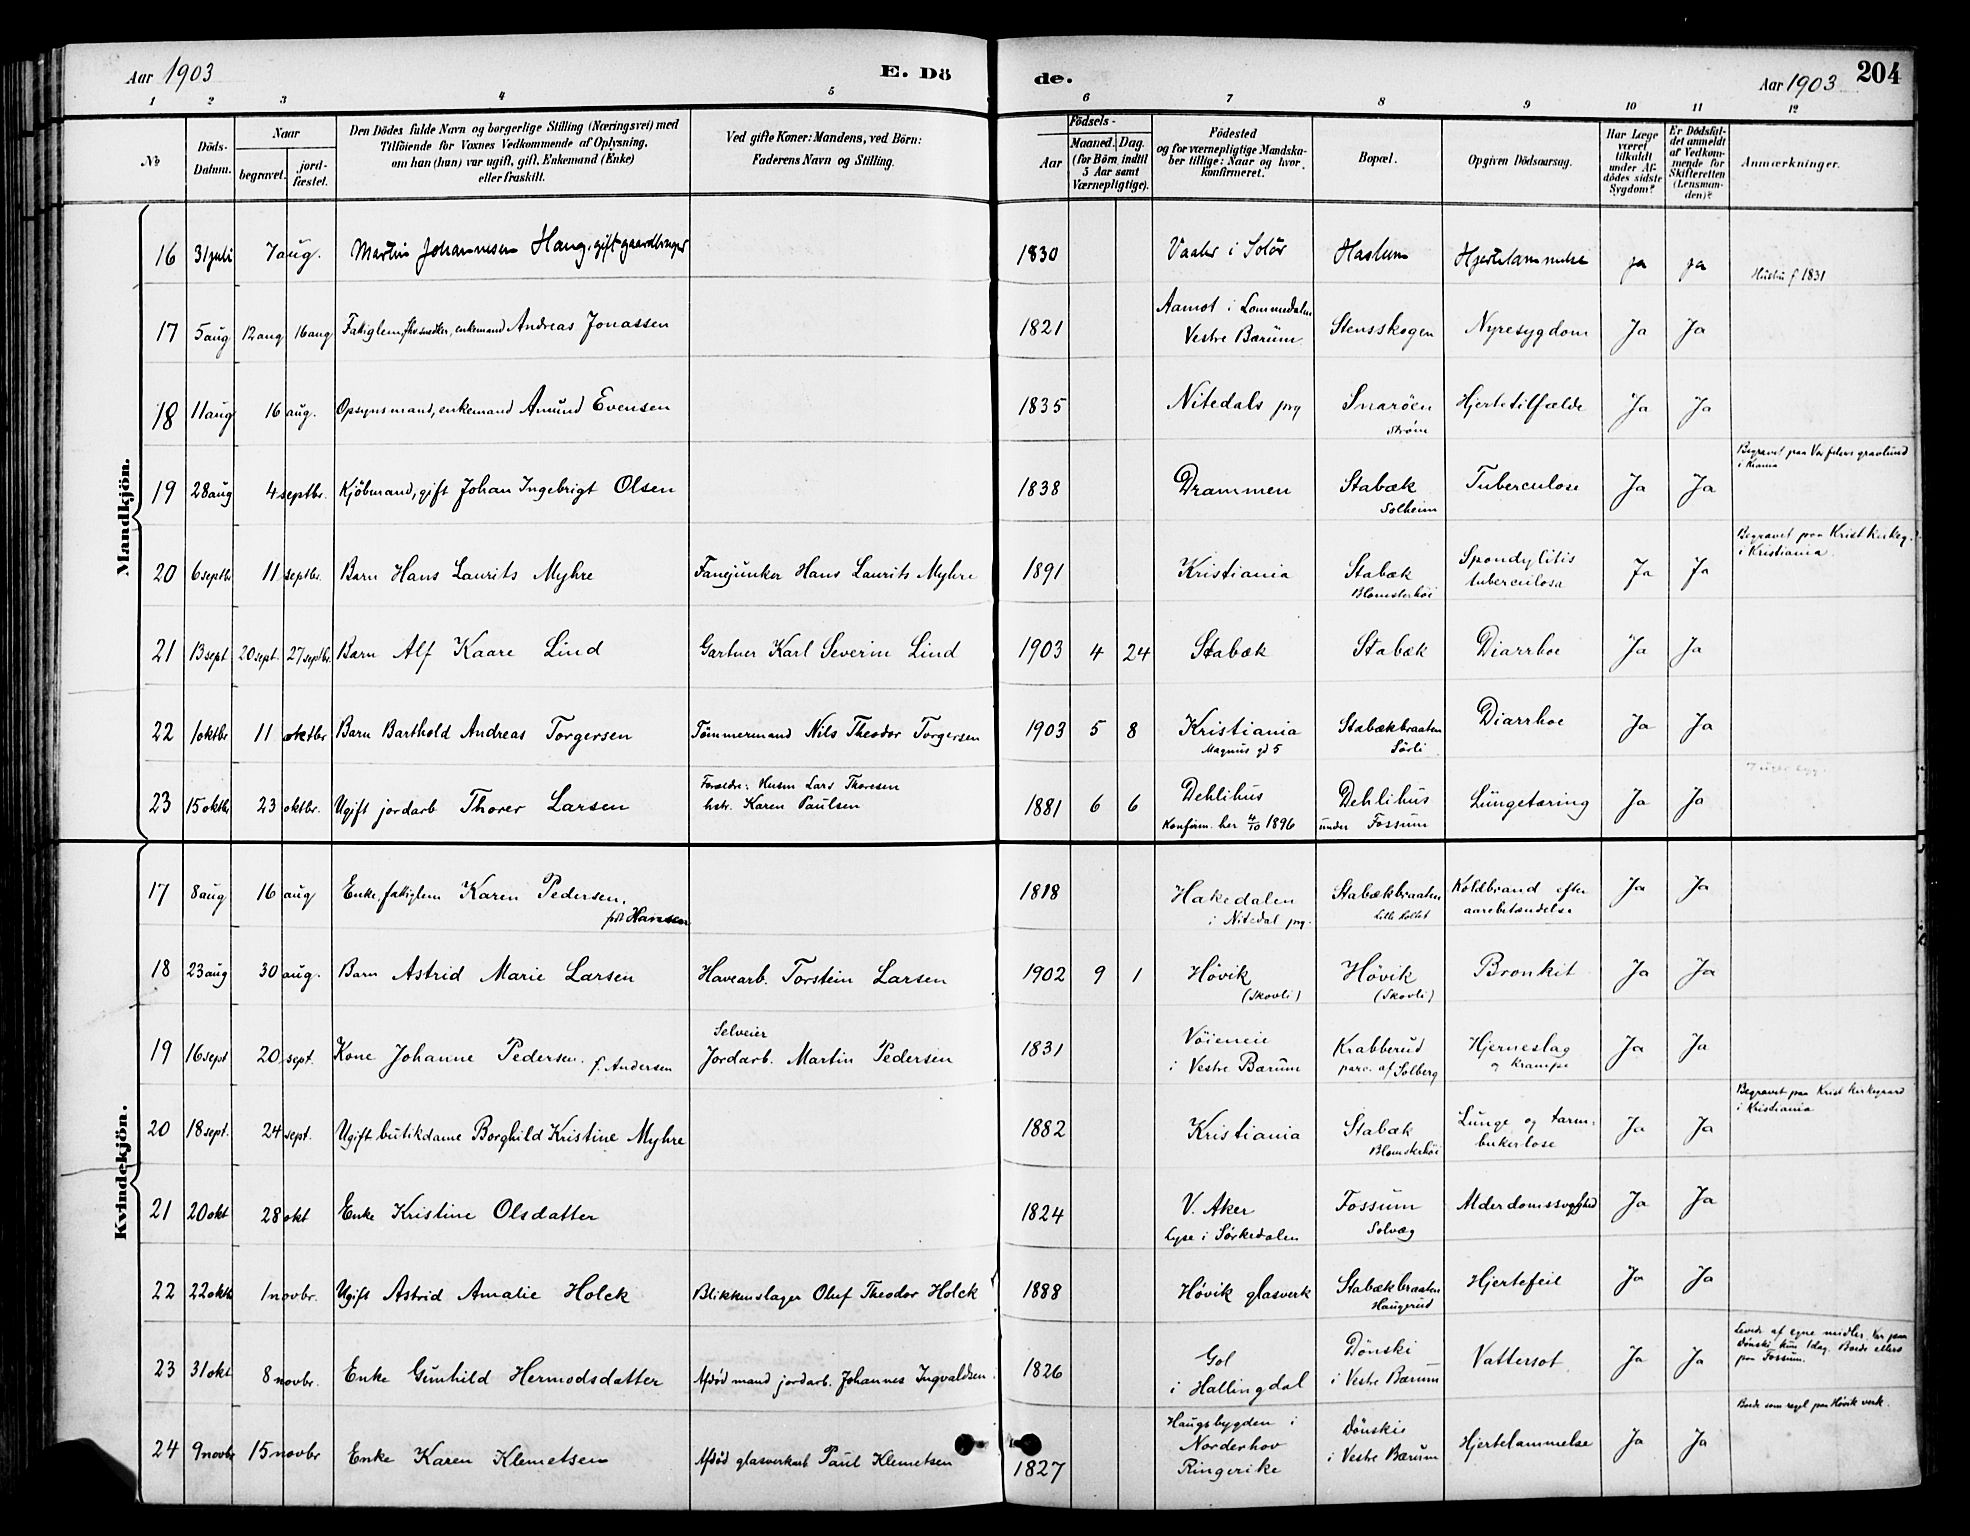 Aar 1903
E. Dö
de.
Aar 1903
204
1 2 3 4 5 6 7 8 9 10 11 12
No
Döds-Datum.
Naar
begravet.
jord-fæstet.
Den Dödes fulde Navn og borgerlige Stilling (Næringsvei) med
Tilföiende for Voxnes Vedkommende af Oplysning,
om han (hun) var ugift, gift, Enkemand (Enke)
eller fraskilt.
Ved gifte Koner: Mandens, ved Börn:
Faderens Navn og Stilling.
Födsels-
Aar
Maaned.
Dag.
(for Börn indtil
5 Aar samt
Værnepligtige).
Födested
og for værnepligtige Mandska-
ber tillige: Naar og hvor
konfirmeret.
Bopæl.
Opgiven Dödsaarsag.
Har Læge
været
tilkaldt
under Af-
dödes sidste
Sygdom?
Er Dödsfal-
det anmeldt
af Vedkom-
mende for
Skifteretten
(Lensman-
den)?
Anmærkninger.
Mandkjön.
16 31 juli 7 aug. Martin Johannesen Haug, gift gaardbruger 1830 Vaaler i Solør Haslum Hjertelammelse ja ja
Hustru f 1831
17 5 aug 12 aug 16 aug Fattiglem, skomager, enkemand Andreas Jonassen 1821 Aamot i Lommedalen Vestre Bærum Stensskogen Nyresygdom Ja Ja
18 11 aug 16 aug. Opsynsmand, enkemand Amund Evensen 1835 Nitedals prg Snarøen Strøm Hjertetilfælde Ja Ja
19 28 aug 4 septbr. Kjøbmand, gift Johan Ingebrigt Olsen 1838 Drammen Stabæk Solheim Tuberculose Ja Ja Begravet paa Vor frelsers gravlund
20 6 septbr 11 septbr. Barn Hans Laurits Myhre Fanejunker Hans Laurits Myhre 1891 Kristiania Stabæk Blomsterhöi Spondylitis tuberculosa Ja Ja Begravet paa Krist kirkeg. i Kristiania.
21 13 sept 20 sept. 27 septbr. Barn Alf Kaare Lind Gartner Karl Severin Lind 1903 4 24 Stabæk Stabæk Diarrhoe Ja Ja
22 1 oktbr 11 oktbr Barn Barthold Andreas Torgersen Tømmermand Nils Theodor Torgersen 1903 5 8 Kristiania Magnus gd 5 Stabækbraaten Sörli Diarrhoe Ja Ja
23 15 oktbr 23 oktbr. Ugift jordarb Thorer Larsen Forældre: Husm Lars Thoresen hstr. Karen Paulsen 1881 6 6 Dehlihus Konfirm. her 4/10 1896 Dehlihus under Fossum Lungetæring Ja Ja
Kvindekjön.
17 8 aug 16 aug Enke, fattiglem Karen Pedersen. født Hansen 1818 Hakedalen i Nitedal prg. Stabækbraaten Lille Kollet Koldbrand efter aarebetændelse Ja Ja
18 23 aug 30 aug. Barn Astrid Marie Larsen Havearb. Torstein Larsen 1902 9 1 Høvik (Skovli) Høvik (Skovli) Bronkit Ja Ja
19 16 sept 20 sept. Kone Johanne Pedersen f. Andersen Selveier Jordarb. Martin Pedersen 1831 Vöieneie i Vestre Bærum Krabberud parc. af Solberg Hjerneslag og Krampe Ja Ja
20 18 sept. 24 sept. Ugift butikdame Borghild Kristine Myhre 1882 Kristiania Stabæk Blomsterhöi Lunge og tarm-tuberkelose Ja Ja Begravet paa Krist kirkegaard i Kristiania
21 20 okt 28 okt Enke Kristine Olsdatter 1824 V. Aker Lyse i Sørkedalen Fossum Solvæg Alderdomssvaghed Ja Ja
22 22 oktbr 1 novbr. Ugift Astrid Amalie Holck Blikkenslager Oluf Theodor Holck 1888 Høvik glasverk Stabækbraaten Haugerud Hjertefeil Ja Ja
23 31 okt 8 novbr. Enke Gunhild Hermodsdatter Afdød mand jordarb. Johannes Ingvaldsen. 1826 Gol i Hallingdal Dönski i Vestre Bærum Vattersot Ja Ja Levede af egne midler. Var paa Dönski kun 1 dag. Bode ellers paa Fossum.
24 9 novbr 15 novbr Enke Karen Klemetsen Afdød glasverkarb Paul Klemetsen 1827 Haugsbygden i Norderhov Ringerike Dönskie i Vestre Bærum Hjertelammelse Ja Ja Bode som regel paa Høvik verk.